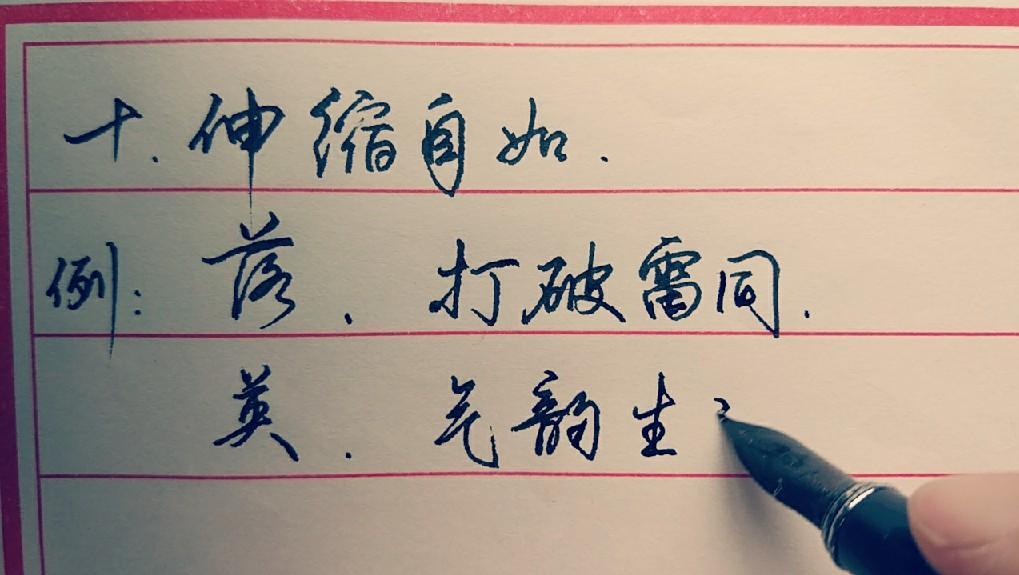 十.伸缩自如.
例:落.打破雷同.
英.气韵生